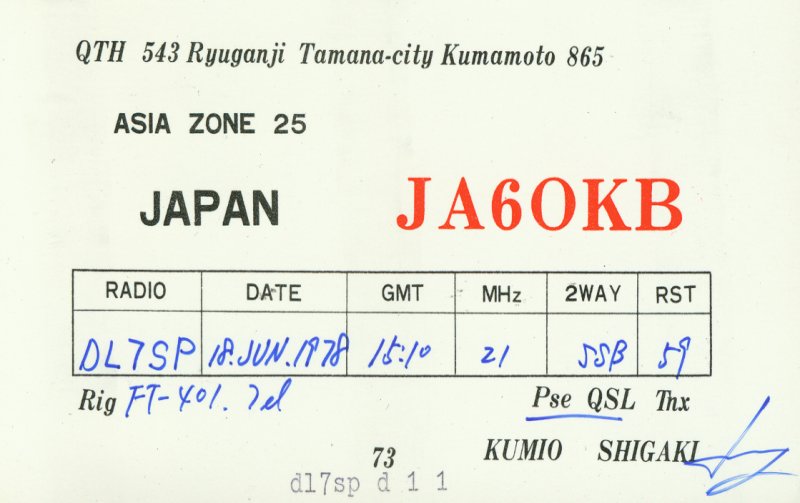 QTH 543 Ryuganji Tamana-city Kumamoto 865
ASIA ZONE 25
JAPAN JA6OKB
RADIO DATE GMT MHz 2WAY RST
DL7SP 18.JUN.1978 15:10 21 SSB 59
Rig FT-401. Pse QSL Thx
73 KUMIO SHIGAKI
dl7sp d 1 1